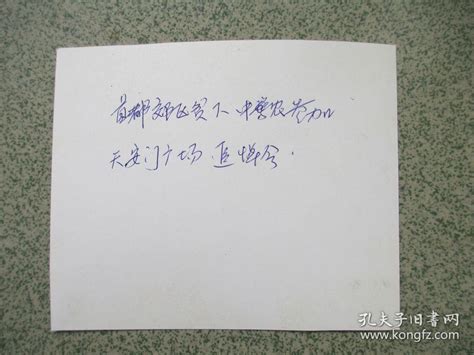 首都郊区贫下中农参加
天安门广场追悼会.
孔夫子旧书网
www.kongfz.com